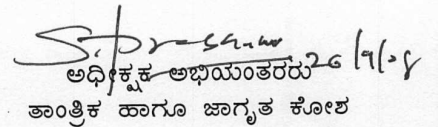 26/9/08
ಅಧೀಕ್ಷಕ ಅಭಿಯಂತರರು
ತಾಂತ್ರಿಕ ಹಾಗೂ ಜಾಗೃತ ಕೋಶ